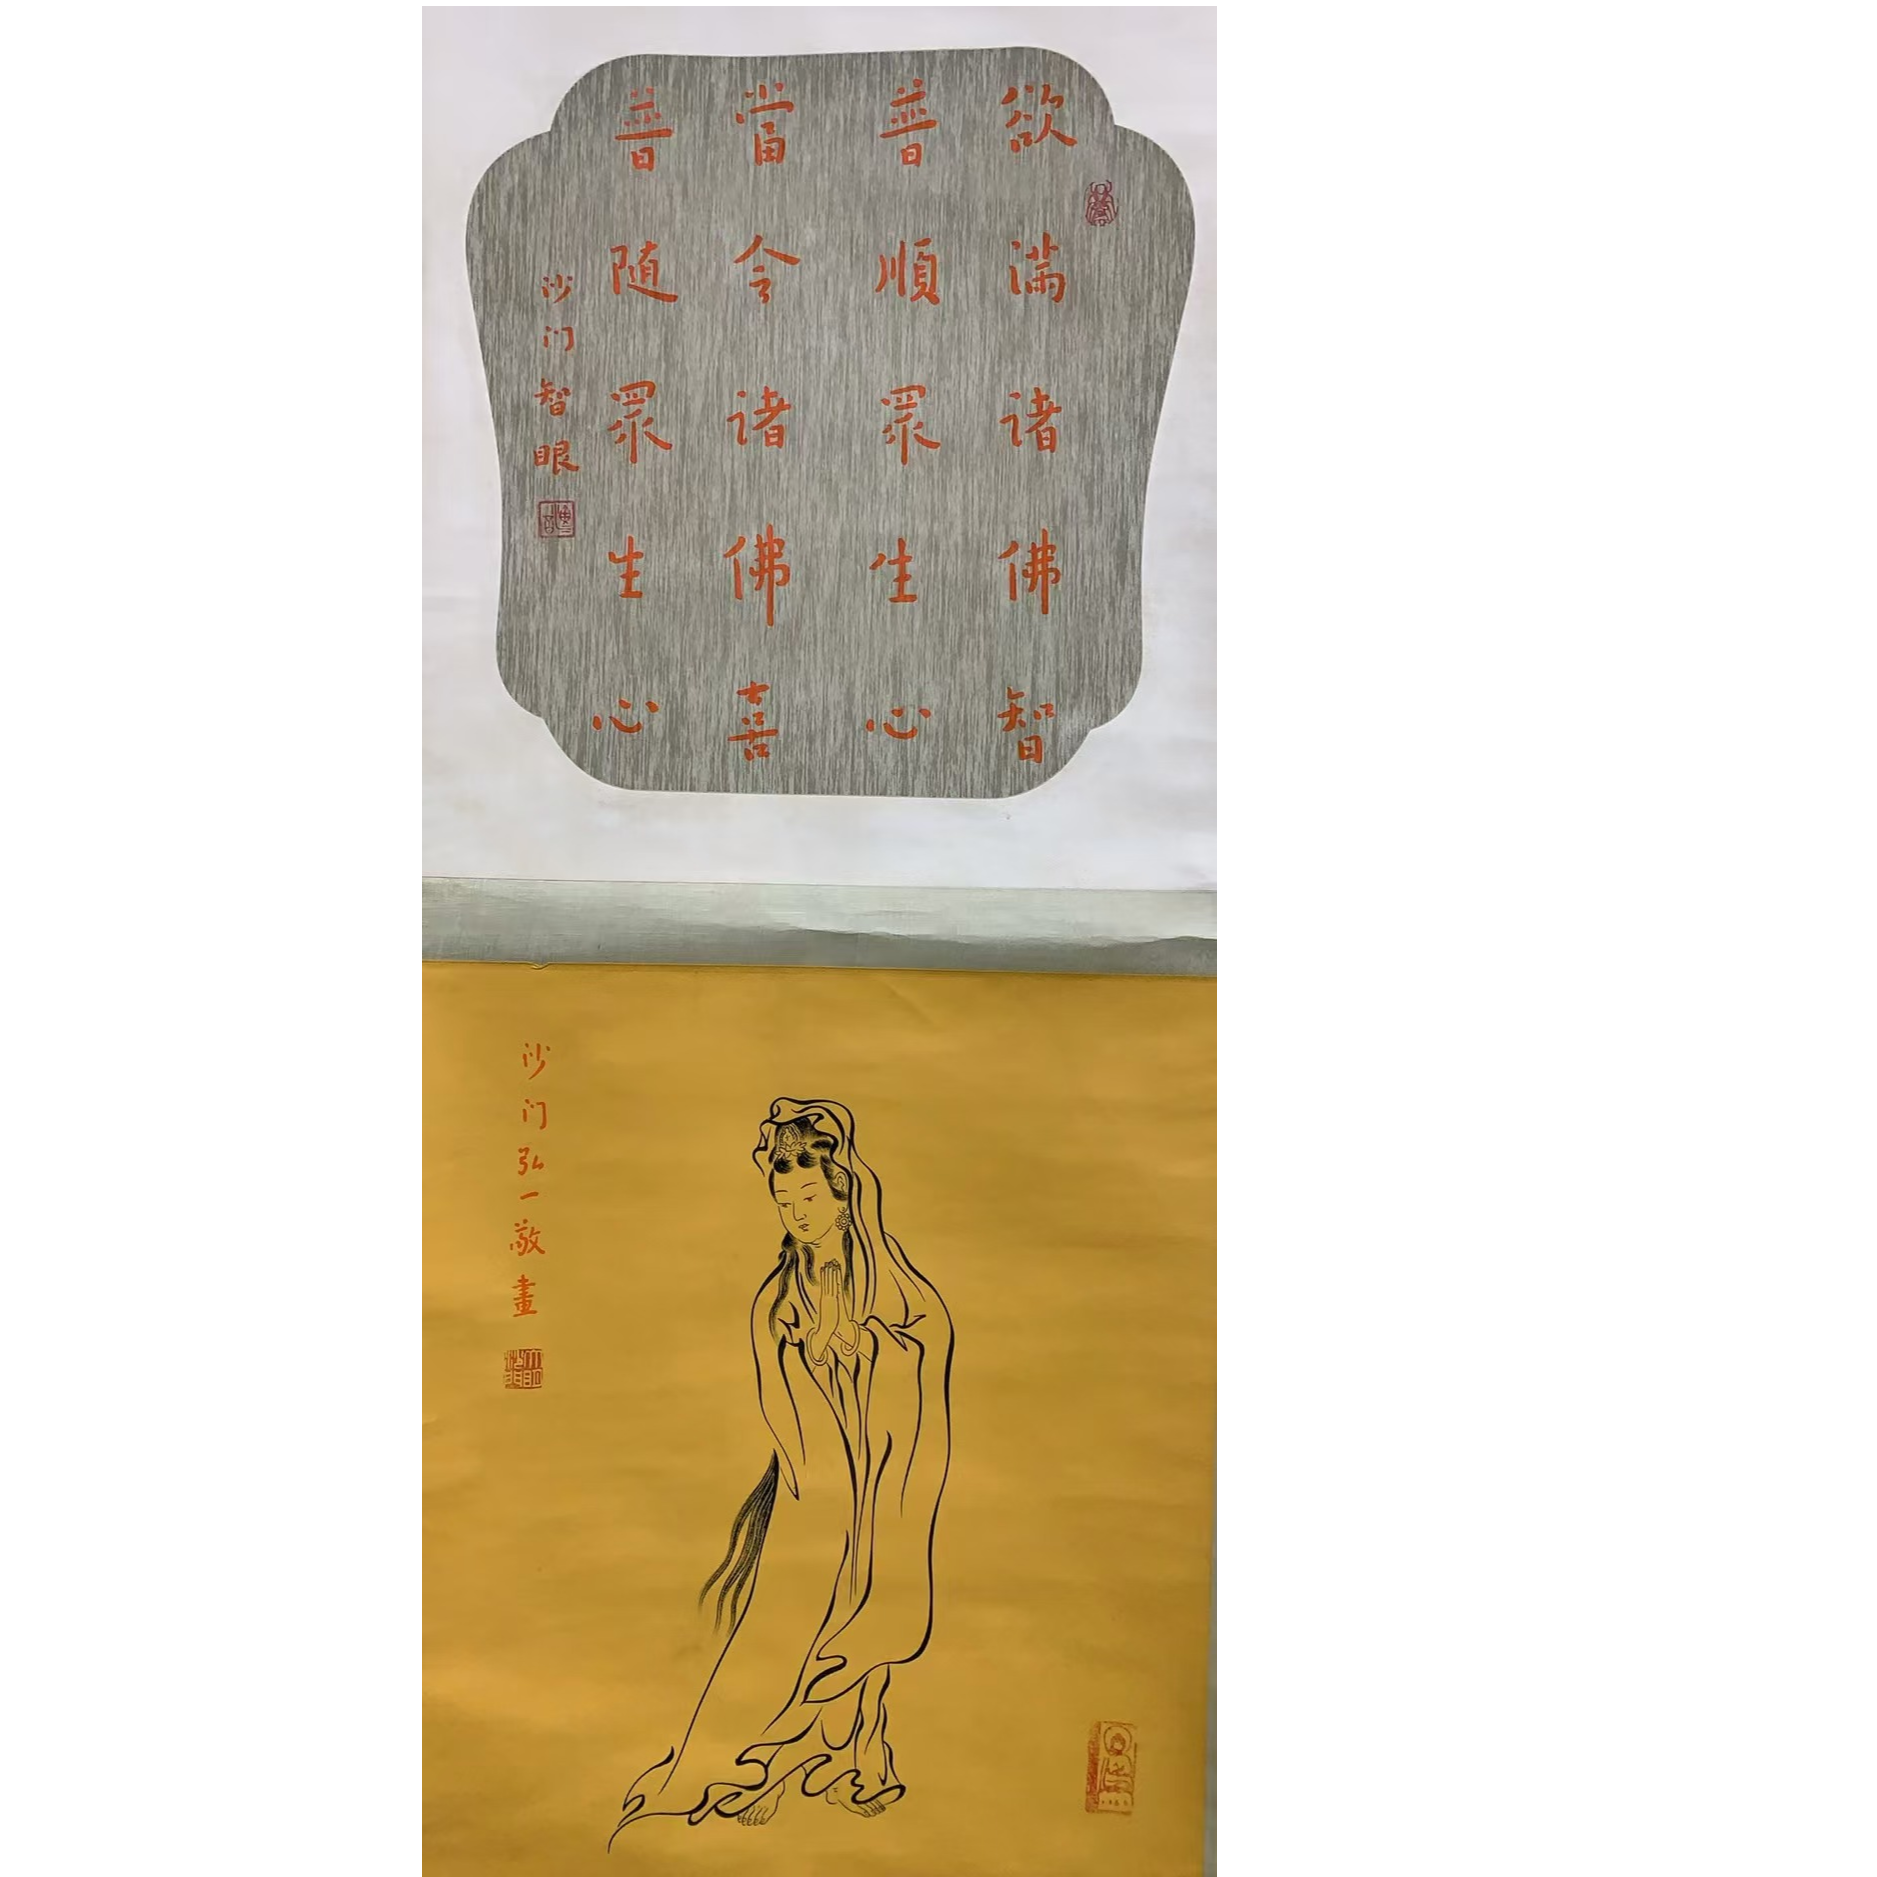 欲满诸佛智
普順眾生心
當令诸佛喜
普随眾生心
沙门智眼
沙门弘一敬畫